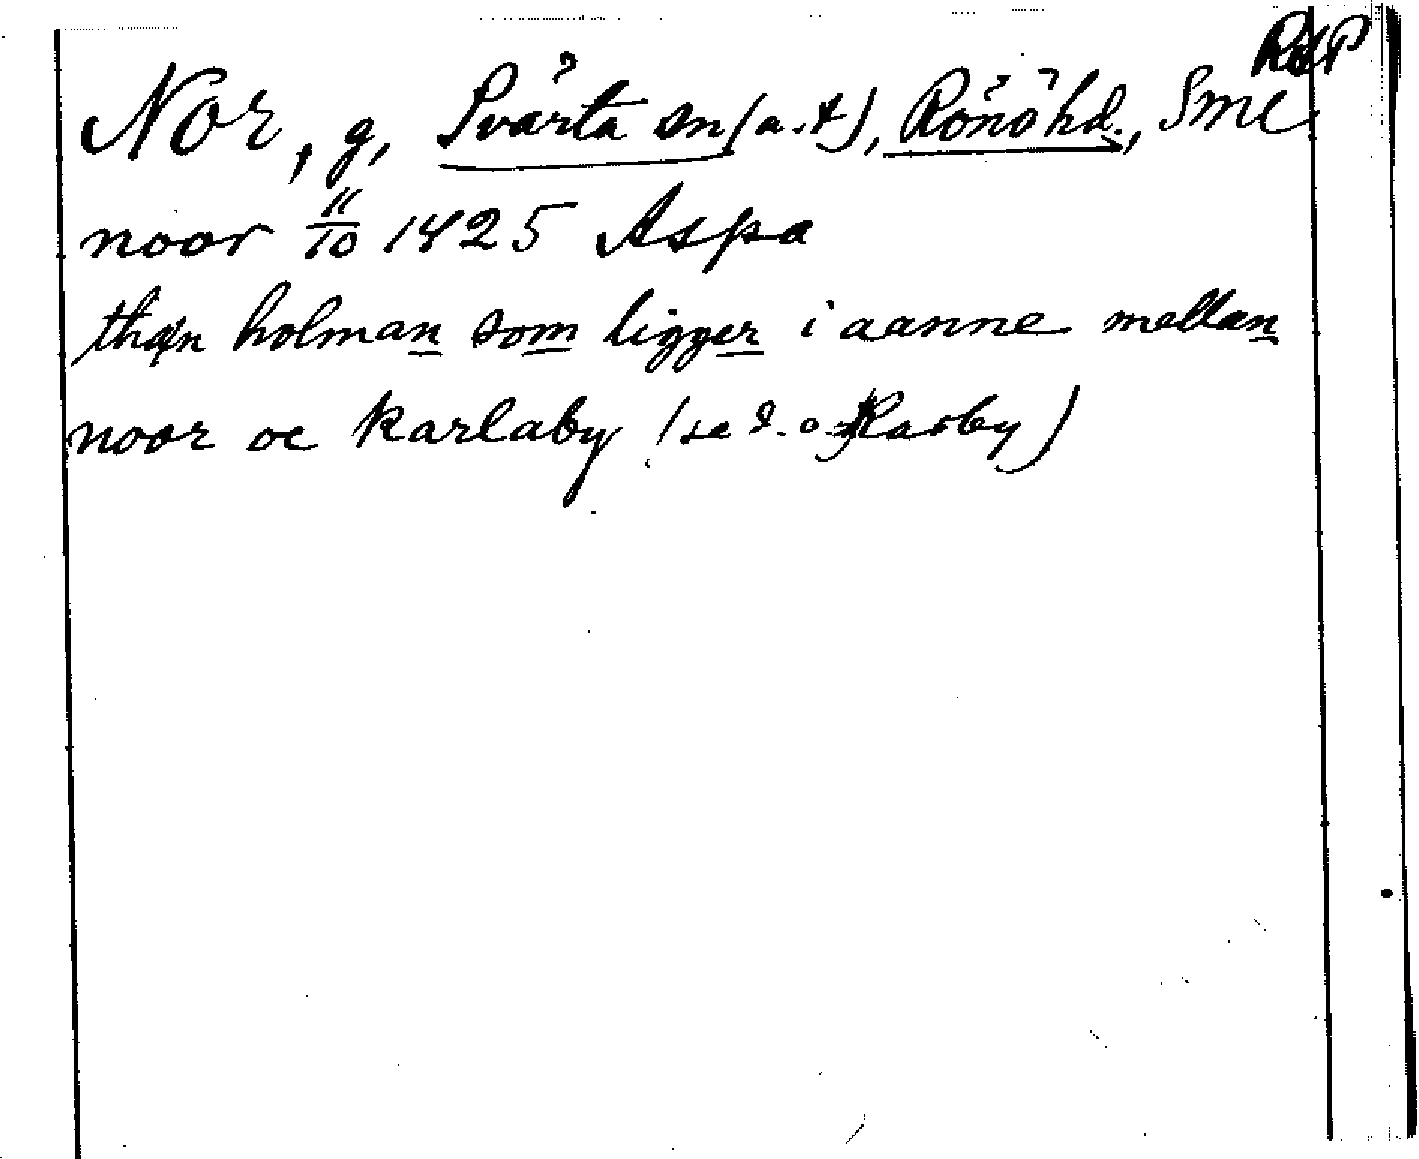 RAP
Nor, g, Svärta sn (a.t), Rönö hd., Sml
noor 11/10 1425 Aspa
than holman som ligger i aanne mellan
noor oc karlaby (se d.o. Karby)